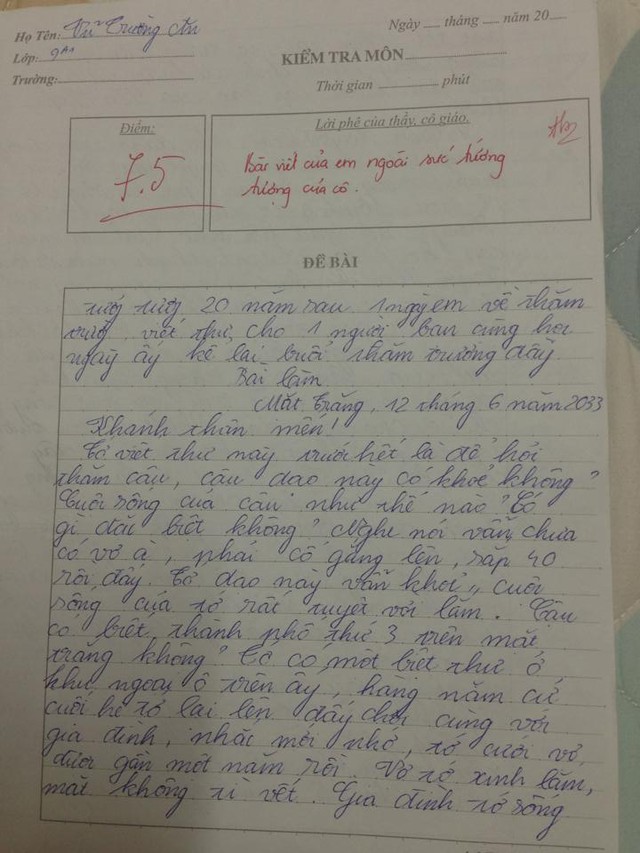 Họ Tên: Vũ Trường An
Ngày __ tháng __ năm 20__
Lớp: 9A1
KIỂM TRA MÔN
Trường:
Thời gian phút
Điểm:
Lời phê của thầy, cô giáo.
7.5
Bài viết của em ngoài sức tưởng
tượng của cô.
ĐỀ BÀI
tưởng tượng 20 năm sau 1 ngày em về thăm
trường viết thư cho 1 người bạn cùng học
ngày ấy kể lại buổi thăm trường đầy
Bài làm
Mặt Trăng, 12 tháng 6 năm 2033
Khánh thân mến!
Tớ viết thư này trước hết là để hỏi
thăm cậu, cậu dạo này có khoẻ không?
Cuộc sống của cậu như thế nào? Có
gì đặc biệt không? Nghe nói vẫn chưa
có vợ à, phải cố gắng lên, sắp 40
rồi đấy. Tớ dạo này vẫn khoẻ, cuộc
sống của tớ rất tuyệt vời lắm. Cậu
có biết thành phố thứ 3 trên mặt
trăng không? Tớ có một biệt thự ở
khu ngoại ô trên ấy, hàng năm cứ
cuối hè tớ lại lên đấy chơi cùng với
gia đình, nhắc mới nhớ, tớ cưới vợ
được gần một năm rồi. Vợ tớ xinh lắm,
mặt không tì vết. Gia đình tớ sống